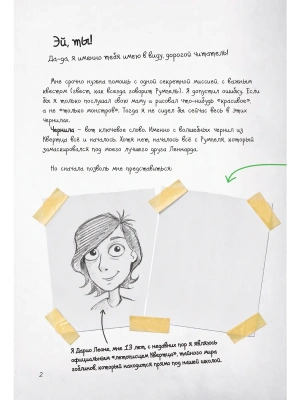 Эй, ты!
Да-да, я именно тебя имею в виду, дорогой читатель!
Мне срочно нужна помощь с одной секретной миссией, с важным
квестом (хвест, как всегда говорит Румпель). Я допустил ошибку. Если
бы я только послушал свою маму и рисовал что-нибудь «красивое»,
а не «только монстров»! Тогда я не сидел бы сейчас весь в этих
чернилах.
Чернила – вот ключевое слово. Именно с волшебных чернил из
Квертца всё и началось. Хотя нет, началось всё с Румпеля, который
замаскировался под моего лучшего друга Леннарда.
Но сначала позволь мне представиться:
Я Дарио Леоне, мне 13 лет, с недавних пор я являюсь
официальным «летописцем Квертца», тайного мира
гоблинов, который находится прямо под нашей школой.
2